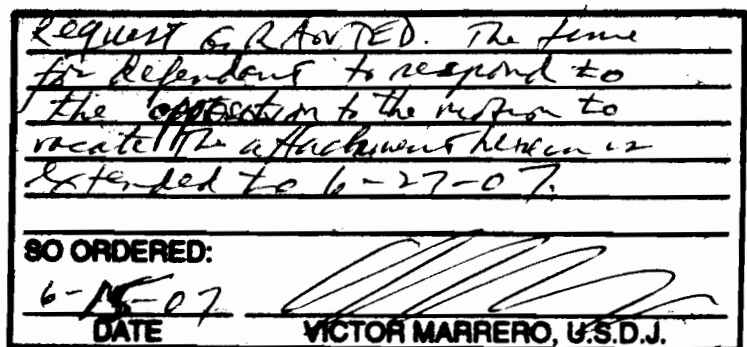 Request GRANTED. The time
for defendant to respond to
the opposition to the motion to
vacate the attachment herein is
extended to 6-27-07.
SO ORDERED:
6-15-07
DATE VICTOR MARRERO, U.S.D.J.